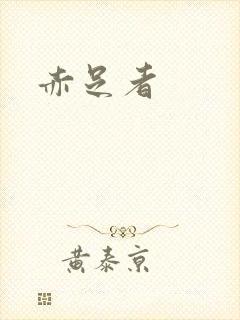 赤足者
黄泰京